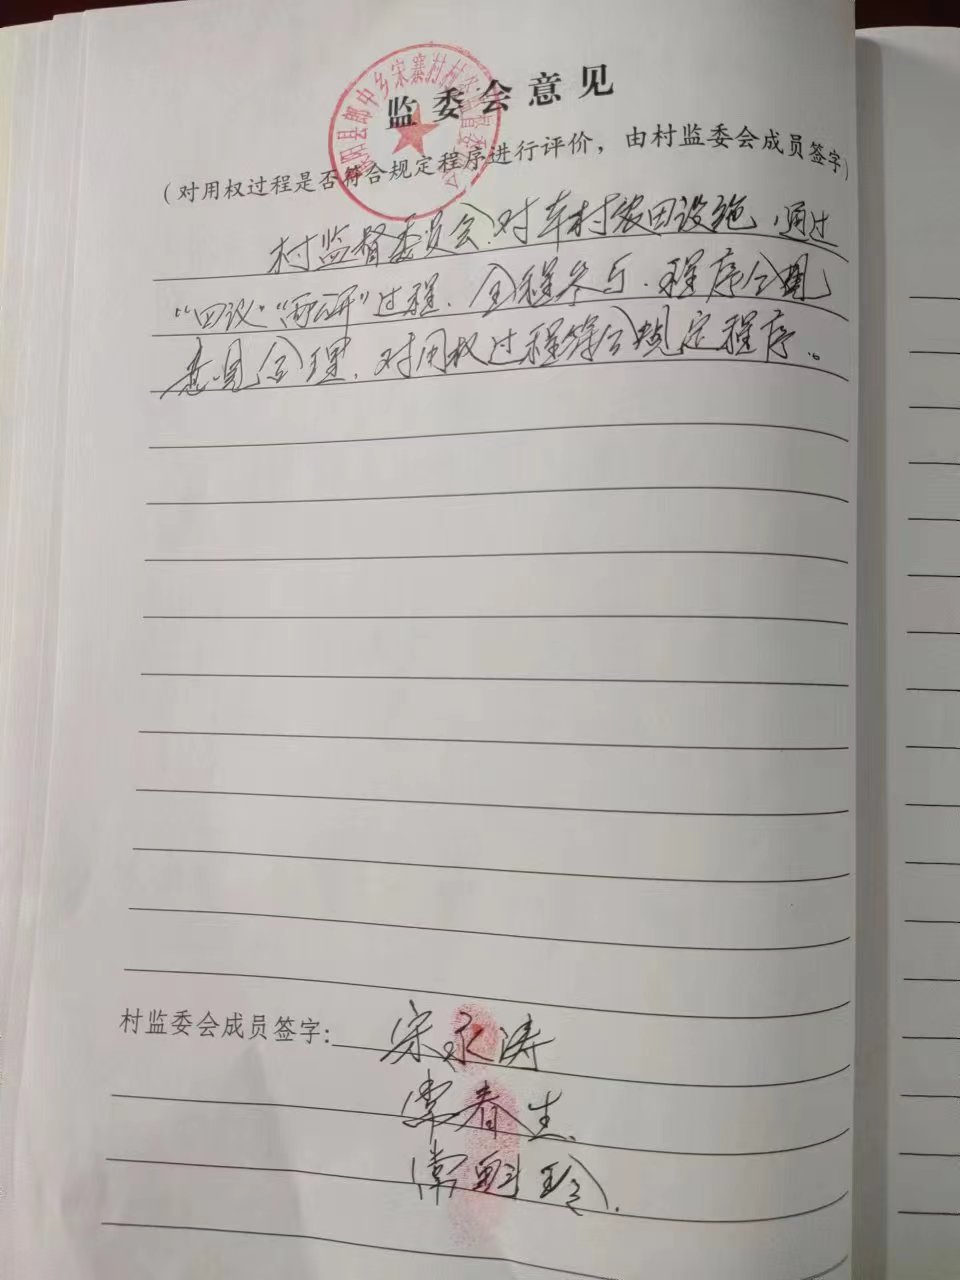 监委会意见
(对用权过程是否符合规定程序进行评价，由村监委会成员签字)
村监督委员会对本村农田设施，通过
“四议”“两公开”过程、全程参与、程序合规
意见合理、对用权过程符合规定程序。
村监委会成员签字:
宋永涛
常春生
常 玲